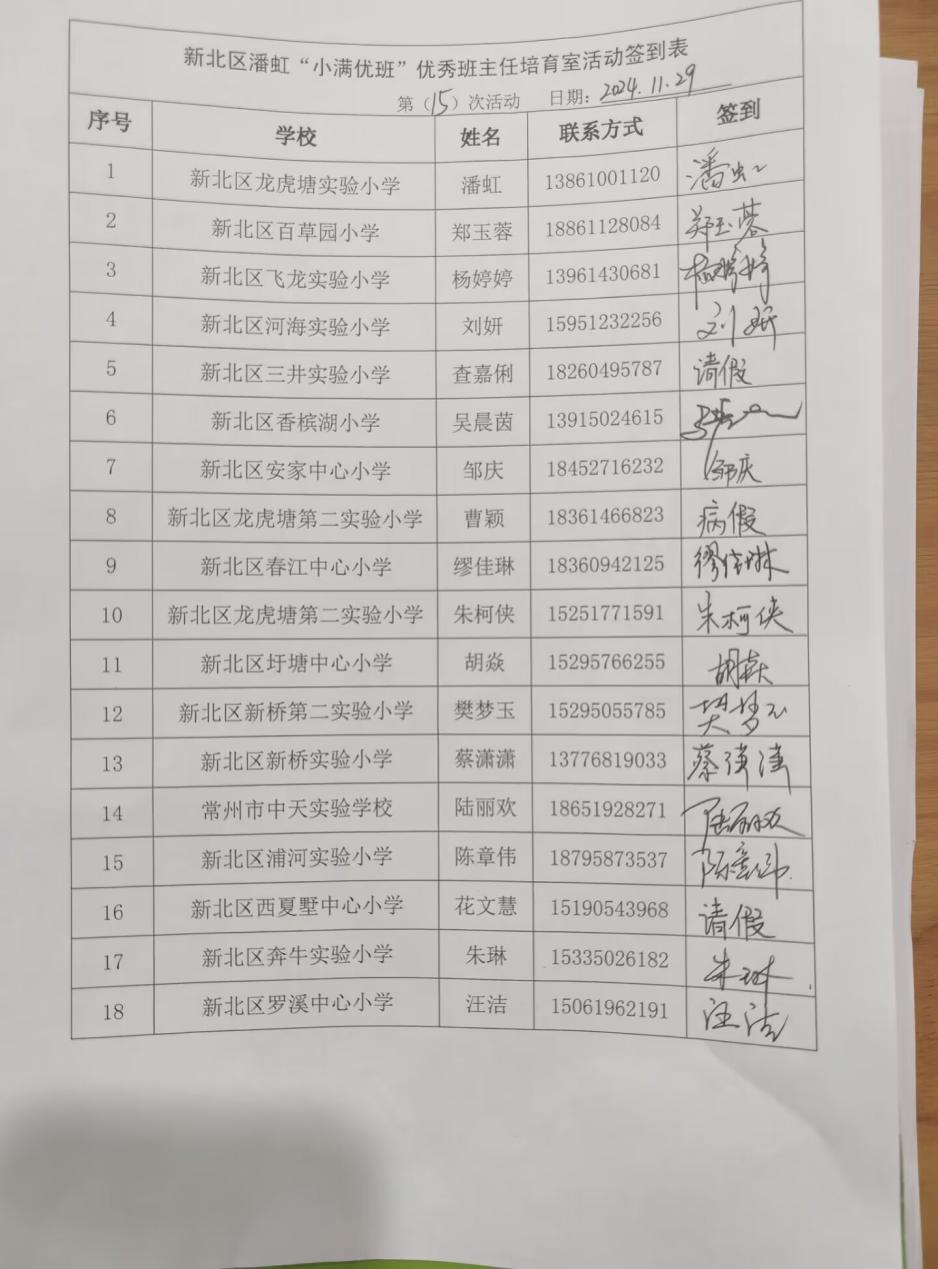 新北区潘虹“小满优班”优秀班主任培育室活动签到表
第（15）次活动 日期：2024.11.29
序号 学校 姓名 联系方式 签到
1 新北区龙虎塘实验小学 潘虹 13861001120 潘虹
2 新北区百草园小学 郑玉蓉 18861128084 郑玉蓉
3 新北区飞龙实验小学 杨婷婷 13961430681 杨婷婷
4 新北区河海实验小学 刘妍 15951232256 刘妍
5 新北区三井实验小学 查嘉俐 18260495787 请假
6 新北区香槟湖小学 吴晨茵 13915024615
7 新北区安家中心小学 邹庆 18452716232 邹庆
8 新北区龙虎塘第二实验小学 曹颖 18361466823 病假
9 新北区春江中心小学 缪佳琳 18360942125 缪佳琳
10 新北区龙虎塘第二实验小学 朱柯侠 15251771591 朱柯侠
11 新北区圩塘中心小学 胡焱 15295766255 胡焱
12 新北区新桥第二实验小学 樊梦玉 15295055785 樊梦玉
13 新北区新桥实验小学 蔡潇潇 13776819033 蔡潇潇
14 常州市中天实验学校 陆丽欢 18651928271 陆丽欢
15 新北区浦河实验小学 陈章伟 18795873537 陈章伟
16 新北区西夏墅中心小学 花文慧 15190543968 请假
17 新北区奔牛实验小学 朱琳 15335026182 朱琳
18 新北区罗溪中心小学 汪洁 15061962191 汪洁